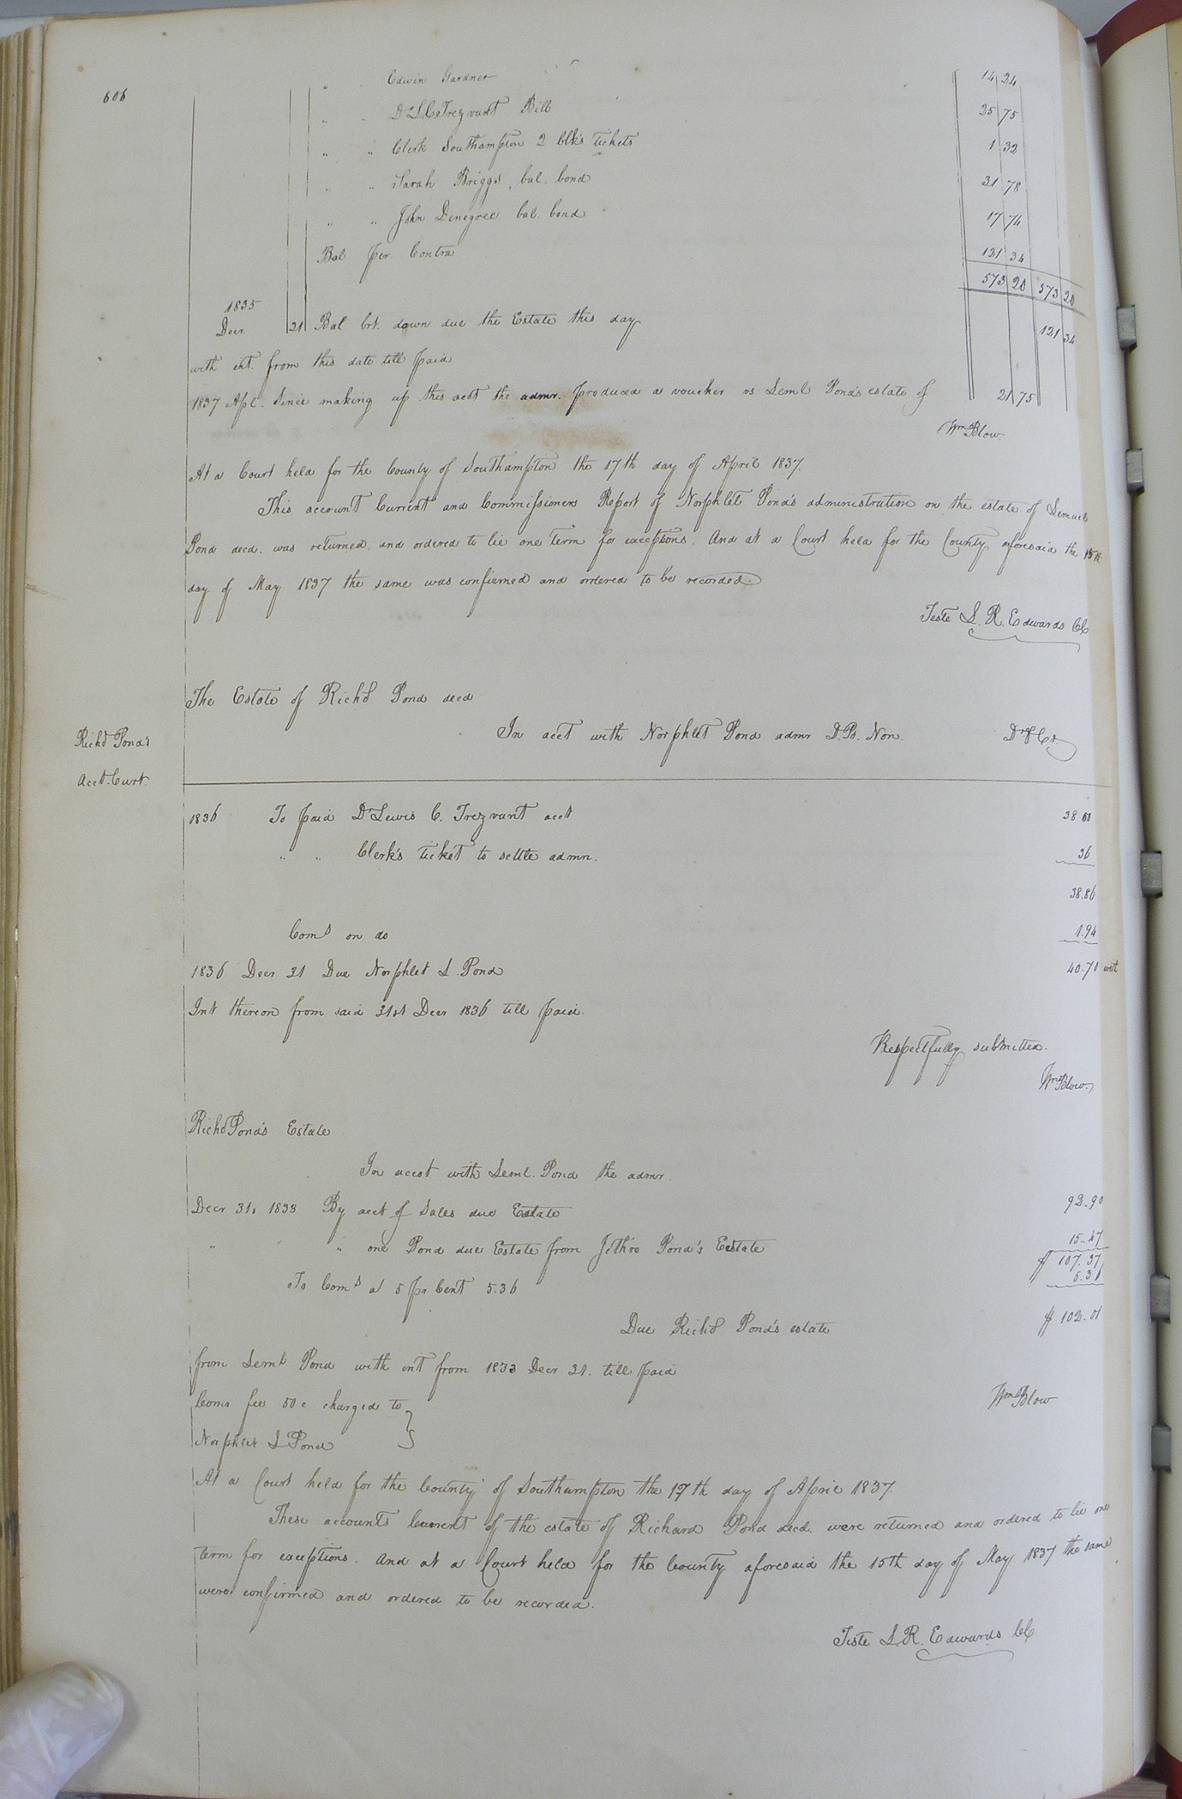 606
" Edwin Gardner 14 24
" " Dr L. C. Trezvant Bill 25 75
" " Clerk Southampton 2 Clk's tickets 1 32
" " Sarah Briggs, bal. bond 31 78
" " John Denegree bal. bond 17 74
Bal per Contra 121 34
573 20 573 20
1835
Decr. 31 Bal brt. down due the Estate this day 121 34
with int. from this date till paid
1837 Apl. Since making up this acct the admr. produced a voucher vs Leml Pond's estate of 21 75
Wm Blow.
At a Court held for the County of Southampton the 17th day of April 1837.
This account Current and Commissioners Report of Norphlet Pond's administration on the estate of Lemuel
Pond decd. was returned, and ordered to lie one term for exceptions. And at a Court held for the County aforesaid the 15th
day of May 1837 the same was confirmed and ordered to be recorded.
Teste L. R. Edwards CC
The Estate of Richd Pond decd
In acct with Norphlet Pond admr D.B. Non. Dr & Cr.
Richd Pond's
Acct. Curt.
1836 To paid Dr Lewis C. Trezvant acct 38
" " Clerk's ticket to settle admn. 36
38.86
Coms on do 1.94
1836 Decr 31 Due Norphlet L. Pond 40.70 with
Int thereon from said 31st Decr 1836 till paid.
Respectfully submitted.
Wm Blow.
Richd Pond's Estate
In accot with Leml. Pond the admr.
Decr 31, 1833 By acct of Sales due Estate 92-90
" " one Pond due Estate from Jethro Pond's Estate 15-47
$ 107.37
To Coms at 5 pr Cent 5.36 5.36
Due Richd Pond's estate $ 102-01
from Leml Pond with int from 1833 Decr 31. till paid
Comrs fee 50c charged to Wm Blow
Norphlet L Pond
At a Court held for the County of Southampton the 17th day of April 1837.
These accounts current of the estate of Richard Pond decd. were returned and ordered to lie one
term for exceptions. And at a Court held for the County aforesaid the 15th day of May 1837 the same
were confirmed and ordered to be recorded.
Teste L. R. Edwards CC